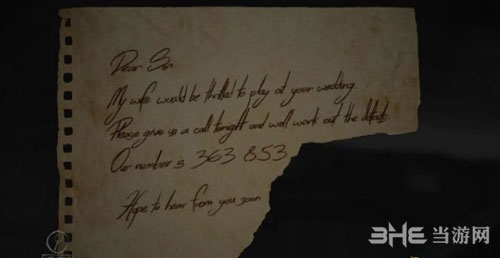 Dear Sir
My wife would be thrilled to play at your wedding.
Please give us a call tonight and we'll work out the details.
Our number is 363 853
Hope to hear from you soon
3HE 当游网